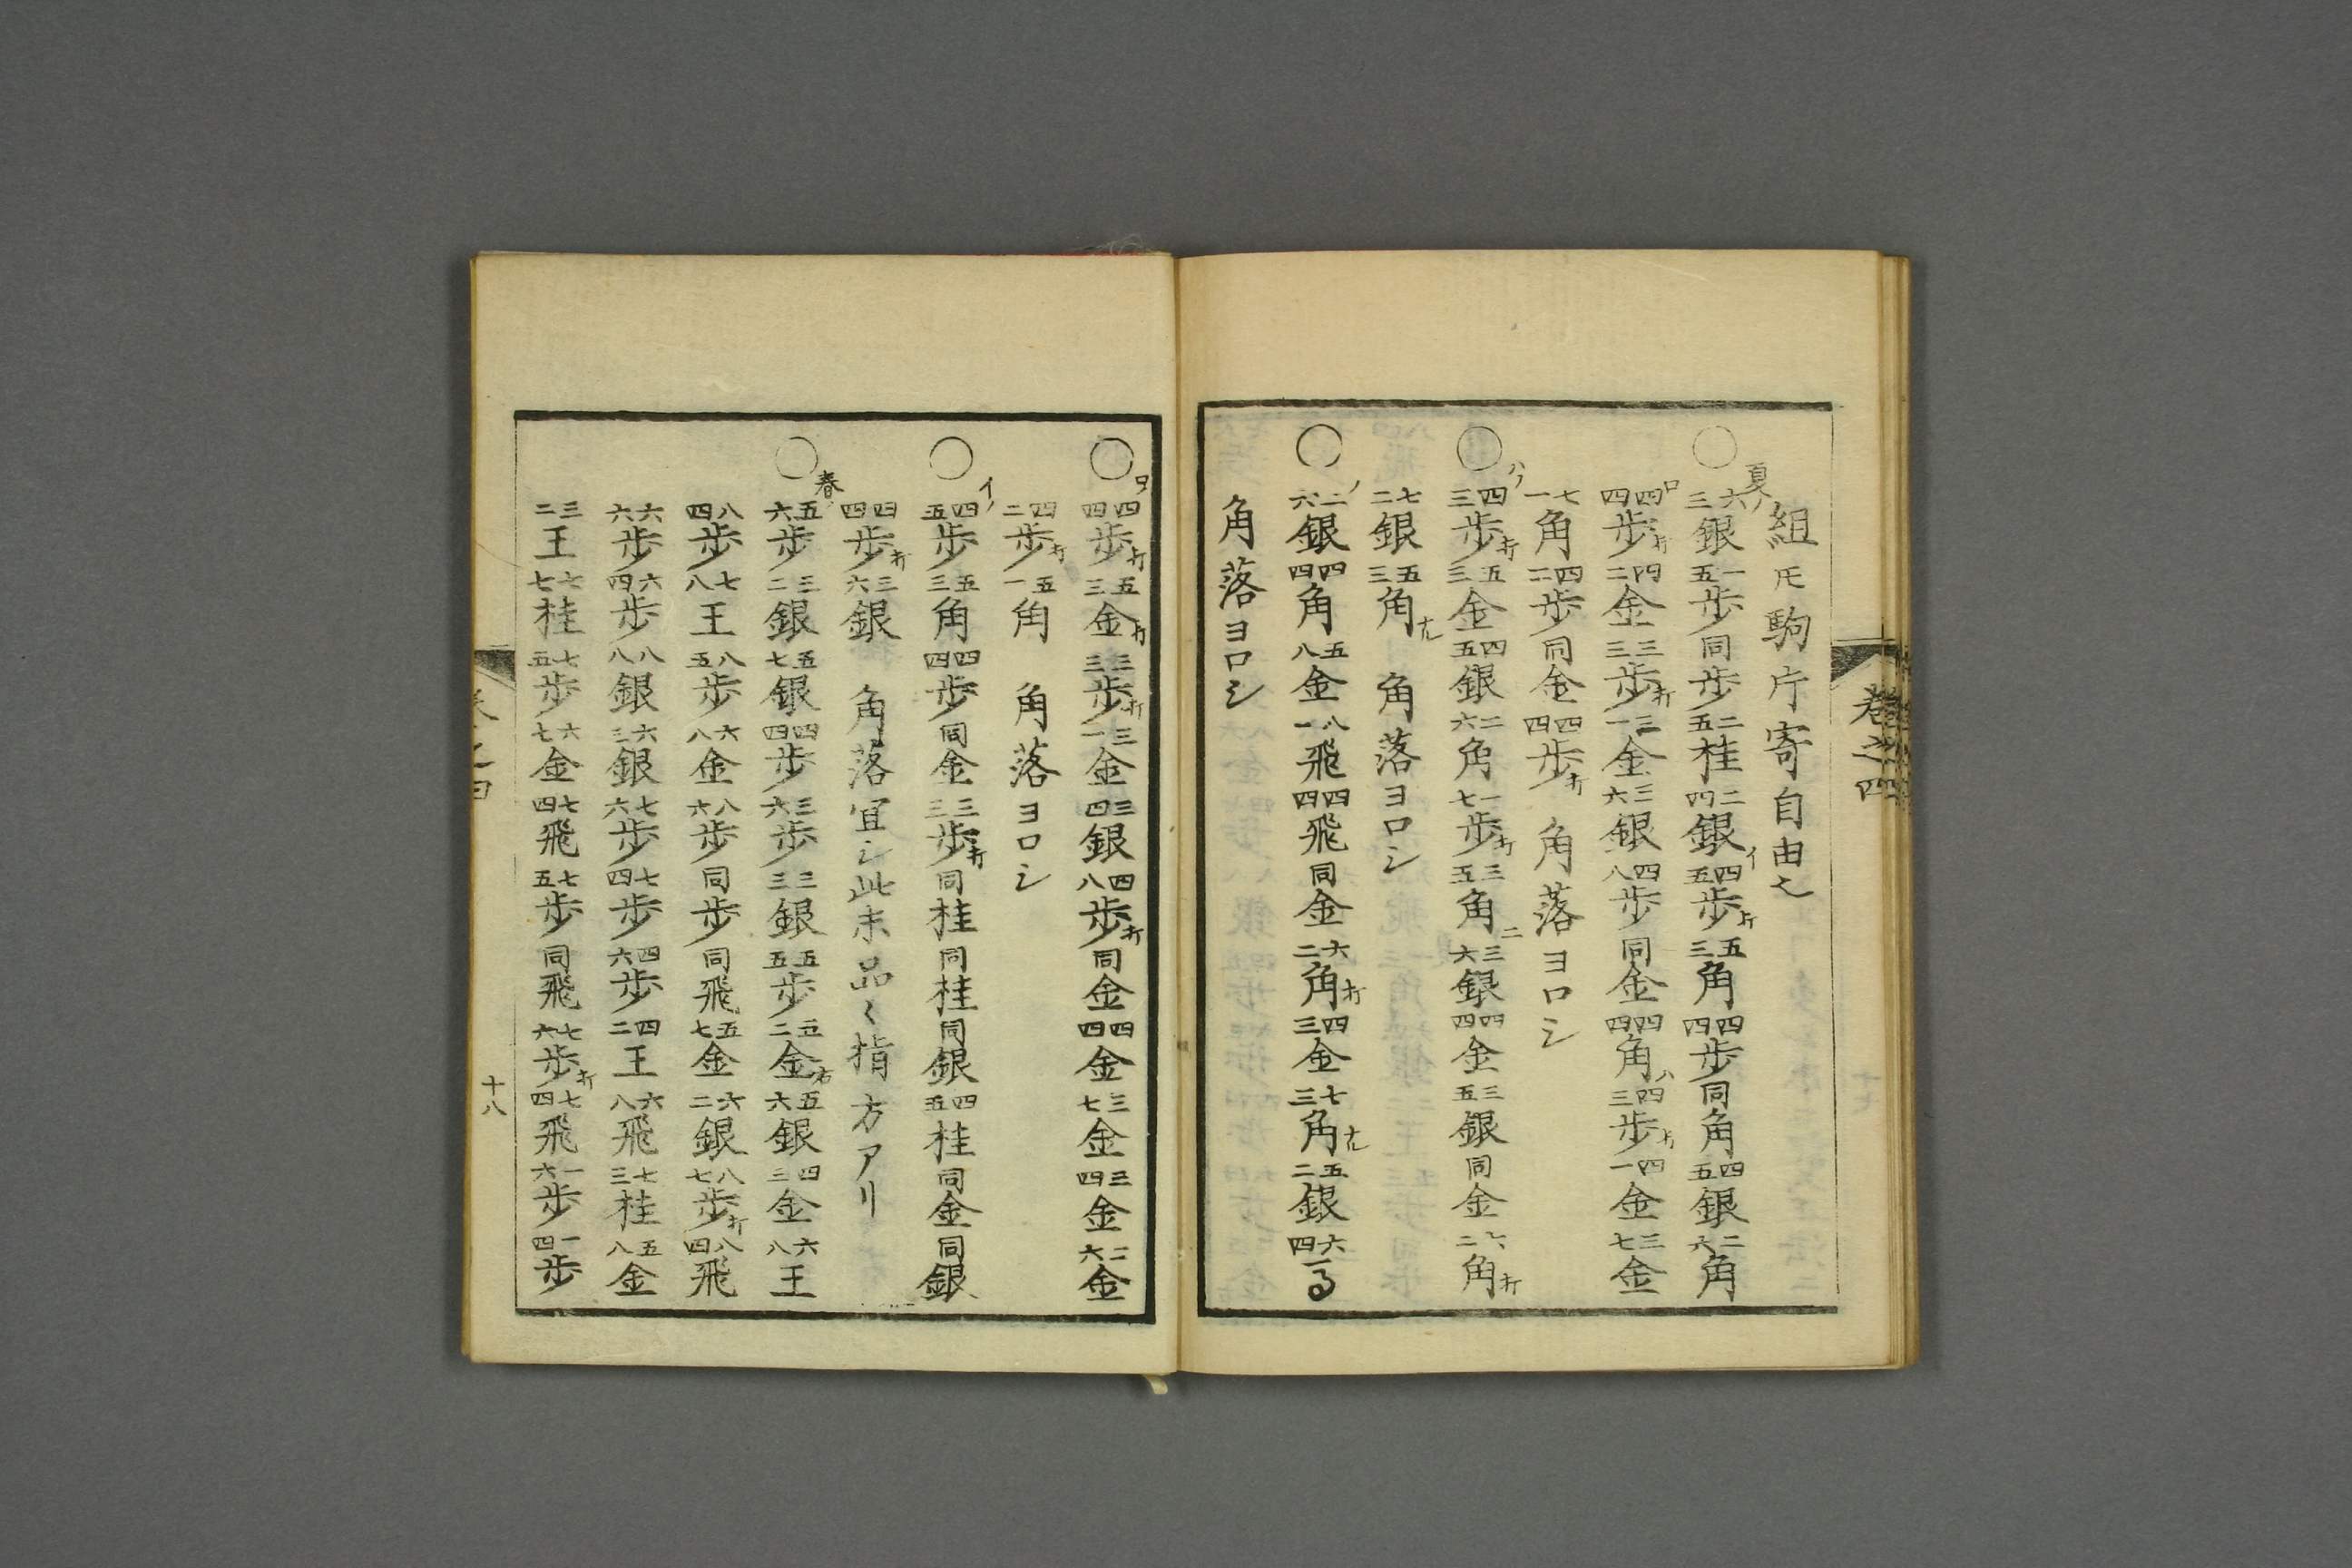 組モ駒片寄自由也
○夏ノ 六三銀 一五歩 同歩 二五桂 二四銀 イ 四五歩打 五三角 四四歩 同角 四五銀 二六角
ロ 四四歩打 四二金 三三歩打 三一金 三六銀 四八歩 同金 四四角 ハ 四三歩打 四一金 三七金
七一角 四二歩 同金 四四歩打 角落ヨロシ
○ハノ 四三歩打 五三金 四五銀 二六角 一七歩打 三五角 ニ 三六銀 四四金 三五銀 同金 六二角打
七二銀 五三角ナル 角落ヨロシ
○ノ 二六銀 四四角 五八金 八一飛 四四飛 同金 六二角打 四三金 七三角ナル 五二銀 六四馬
角落ヨロシ
巻之四
○ロ 四四歩打 五三金打 三三歩打 三一金 三四銀 四八歩打 同金 四四金 三七金 三四金 二六金
四二歩打 五一角 角落ヨロシ
○イノ 四五歩 五三角 四四歩 同金 三三歩打 同桂 同桂 同銀 四五桂 同金 同銀
四四歩打 三六銀 角落宜シ此末品〻指方アリ
○春 五六歩 三二銀 五七銀 四四歩 三六歩 三三銀 五五歩 五二金右 五六銀 四三金 六八王
八四歩 七八王 八五歩 六八金 八六歩 同歩 同飛 五七金 六二銀 八七歩打 八四飛
六六歩 六四歩 八八銀 六三銀 七六歩 七四歩 四六歩 四二王 六八飛 七三桂 五八金
三二王 七七桂 七五歩 六七金 七四飛 七五歩 同飛 七六歩打 七四飛 一六歩 一四歩
十八